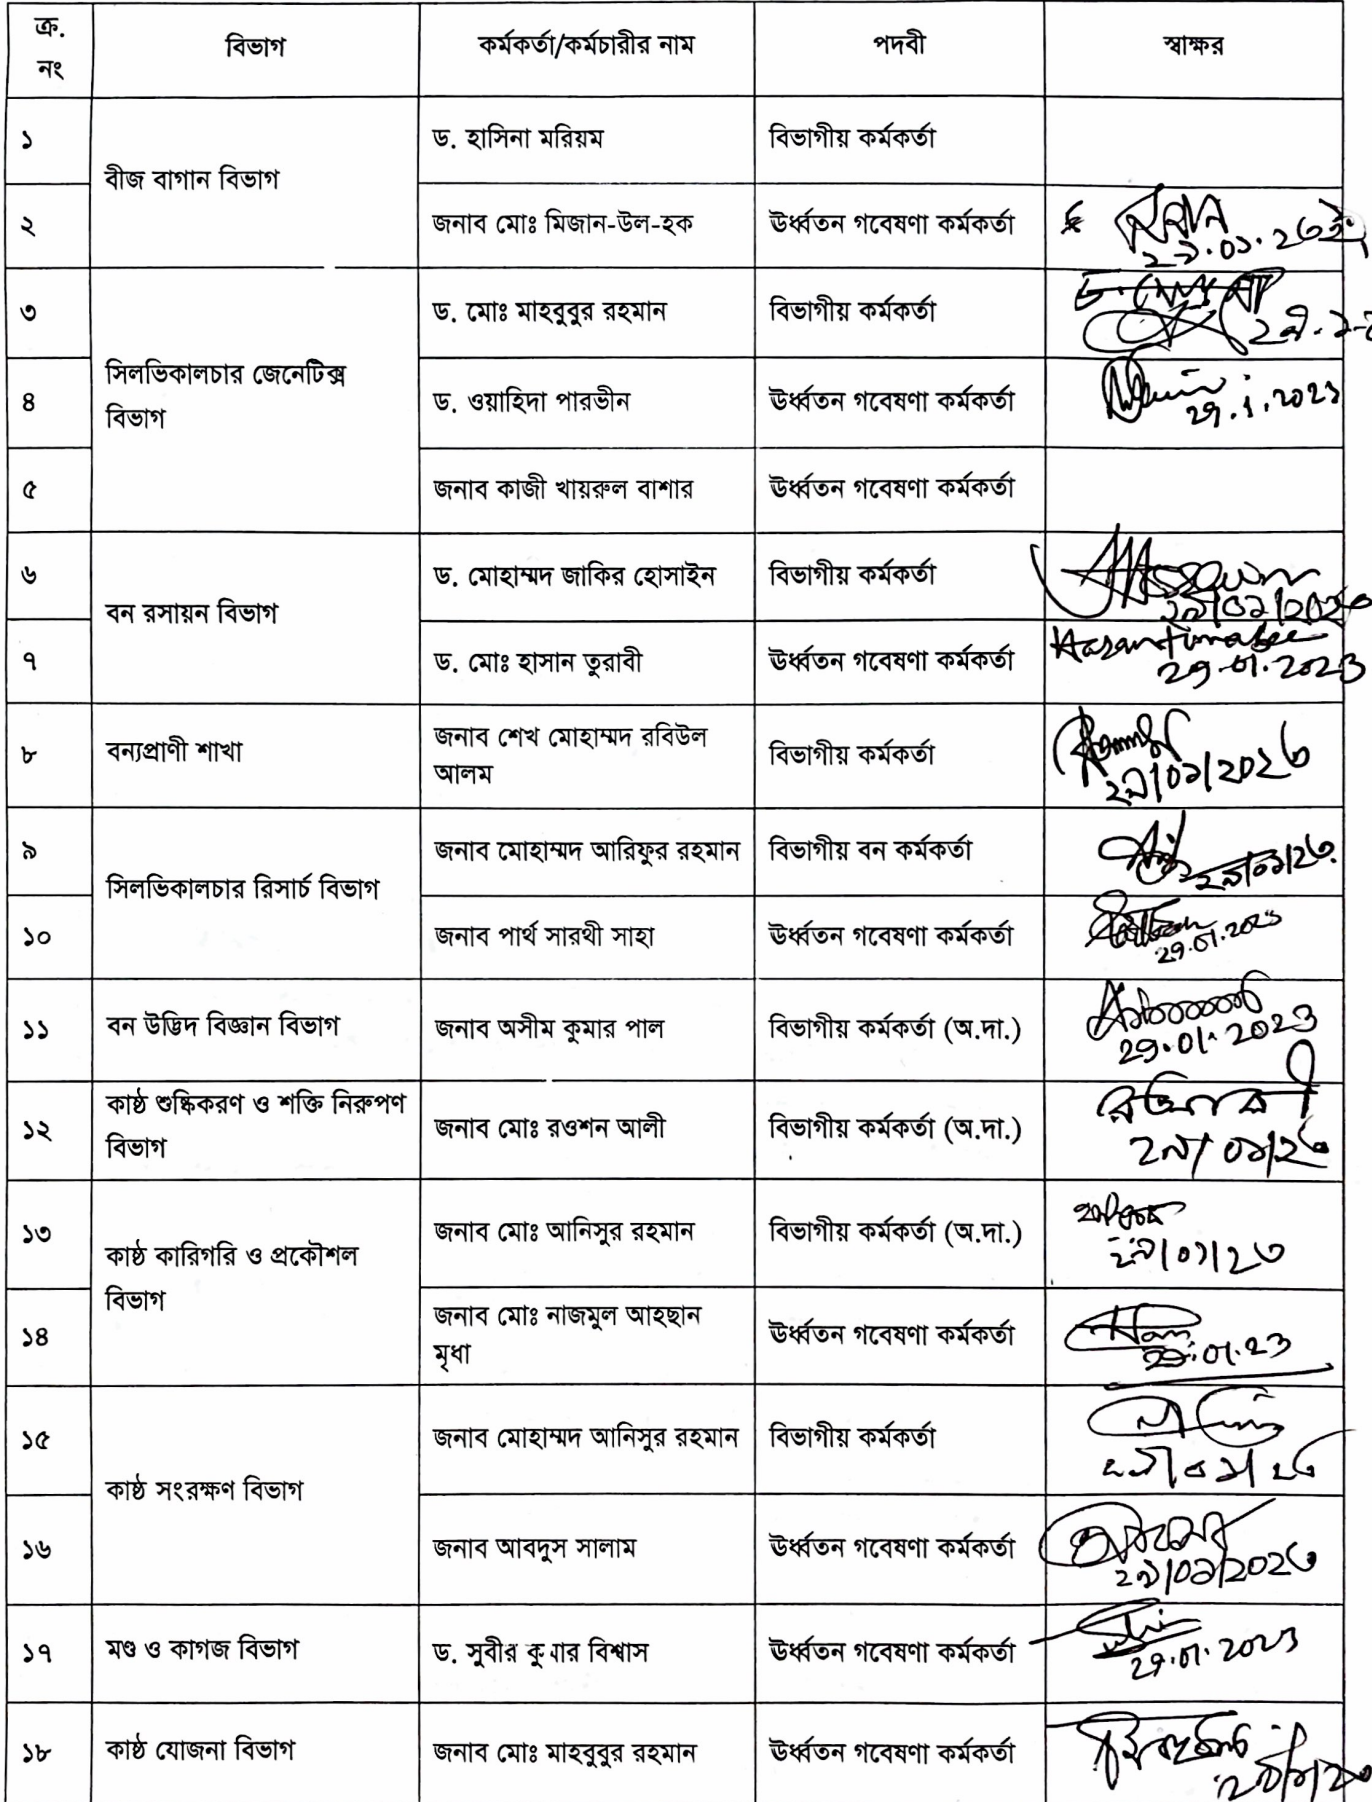 ক্র. নং বিভাগ কর্মকর্তা/কর্মচারীর নাম পদবী স্বাক্ষর
১ বীজ বাগান বিভাগ ড. হাসিনা মরিয়ম বিভাগীয় কর্মকর্তা
২ জনাব মোঃ মিজান-উল-হক ঊর্ধ্বতন গবেষণা কর্মকর্তা
৩ সিলভিকালচার জেনেটিক্স বিভাগ ড. মোঃ মাহবুবুর রহমান বিভাগীয় কর্মকর্তা
৪ ড. ওয়াহিদা পারভীন ঊর্ধ্বতন গবেষণা কর্মকর্তা 29.1.2023
৫ জনাব কাজী খায়রুল বাশার ঊর্ধ্বতন গবেষণা কর্মকর্তা
৬ বন রসায়ন বিভাগ ড. মোহাম্মদ জাকির হোসাইন বিভাগীয় কর্মকর্তা
৭ ড. মোঃ হাসান তুরাবী ঊর্ধ্বতন গবেষণা কর্মকর্তা 29.01.2023
৮ বন্যপ্রাণী শাখা জনাব শেখ মোহাম্মদ রবিউল আলম বিভাগীয় কর্মকর্তা ২৯/০১/২০২৩
৯ সিলভিকালচার রিসার্চ বিভাগ জনাব মোহাম্মদ আরিফুর রহমান বিভাগীয় বন কর্মকর্তা ২৯/০১/২৩
১০ জনাব পার্থ সারথী সাহা ঊর্ধ্বতন গবেষণা কর্মকর্তা 29.01.2023
১১ বন উদ্ভিদ বিজ্ঞান বিভাগ জনাব অসীম কুমার পাল বিভাগীয় কর্মকর্তা (অ.দা.) 29.01.2023
১২ কাষ্ঠ শুষ্কিকরণ ও শক্তি নিরুপণ বিভাগ জনাব মোঃ রওশন আলী বিভাগীয় কর্মকর্তা (অ.দা.) ২৯/০১/২৩
১৩ কাষ্ঠ কারিগরি ও প্রকৌশল বিভাগ জনাব মোঃ আনিসুর রহমান বিভাগীয় কর্মকর্তা (অ.দা.) ২৯/০১/২৩
১৪ জনাব মোঃ নাজমুল আহছান মৃধা ঊর্ধ্বতন গবেষণা কর্মকর্তা 29.01.23
১৫ কাষ্ঠ সংরক্ষণ বিভাগ জনাব মোহাম্মদ আনিসুর রহমান বিভাগীয় কর্মকর্তা
১৬ জনাব আবদুস সালাম ঊর্ধ্বতন গবেষণা কর্মকর্তা ২৯/০১/২০২৩
১৭ মণ্ড ও কাগজ বিভাগ ড. সুবীর কুমার বিশ্বাস ঊর্ধ্বতন গবেষণা কর্মকর্তা 29.01.2023
১৮ কাষ্ঠ যোজনা বিভাগ জনাব মোঃ মাহবুবুর রহমান ঊর্ধ্বতন গবেষণা কর্মকর্তা